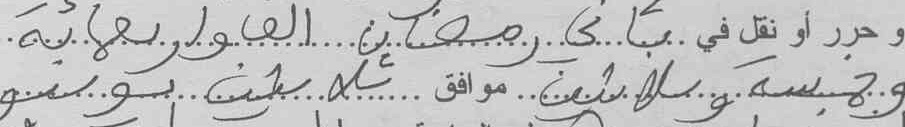 و حرر أو نقل في ثاني رمضان الف واربعمائة
وخمسة وثلاثين موافق ثلاثين يونيو